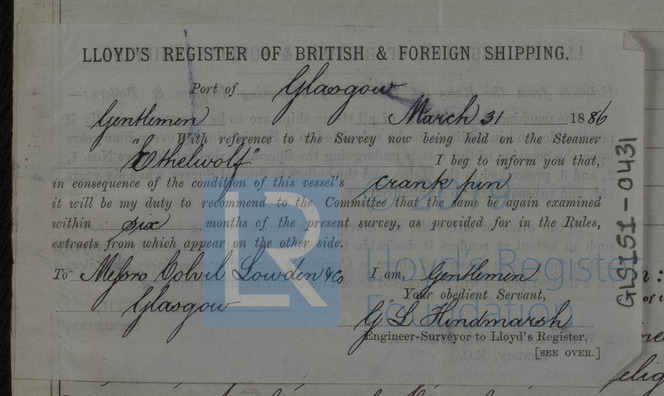 LLOYD'S REGISTER OF BRITISH & FOREIGN SHIPPING.
Port of Glasgow
Gentlemen March 31 1886
With reference to the Survey now being held on the Steamer
"Ethelwolf" I beg to inform you that,
in consequence of the condition of this vessel's crank pin
it will be my duty to recommend to the Committee that the same be again examined
within six months of the present survey, as provided for in the Rules,
extracts from which appear on the other side.
To Messrs Colvil Lowden & Co I am, Gentlemen
Glasgow Your obedient Servant,
G L Hindmarsh
Engineer-Surveyor to Lloyd's Register.
[SEE OVER.]
GLS151-0431
LR
Lloyd's Register
Foundation